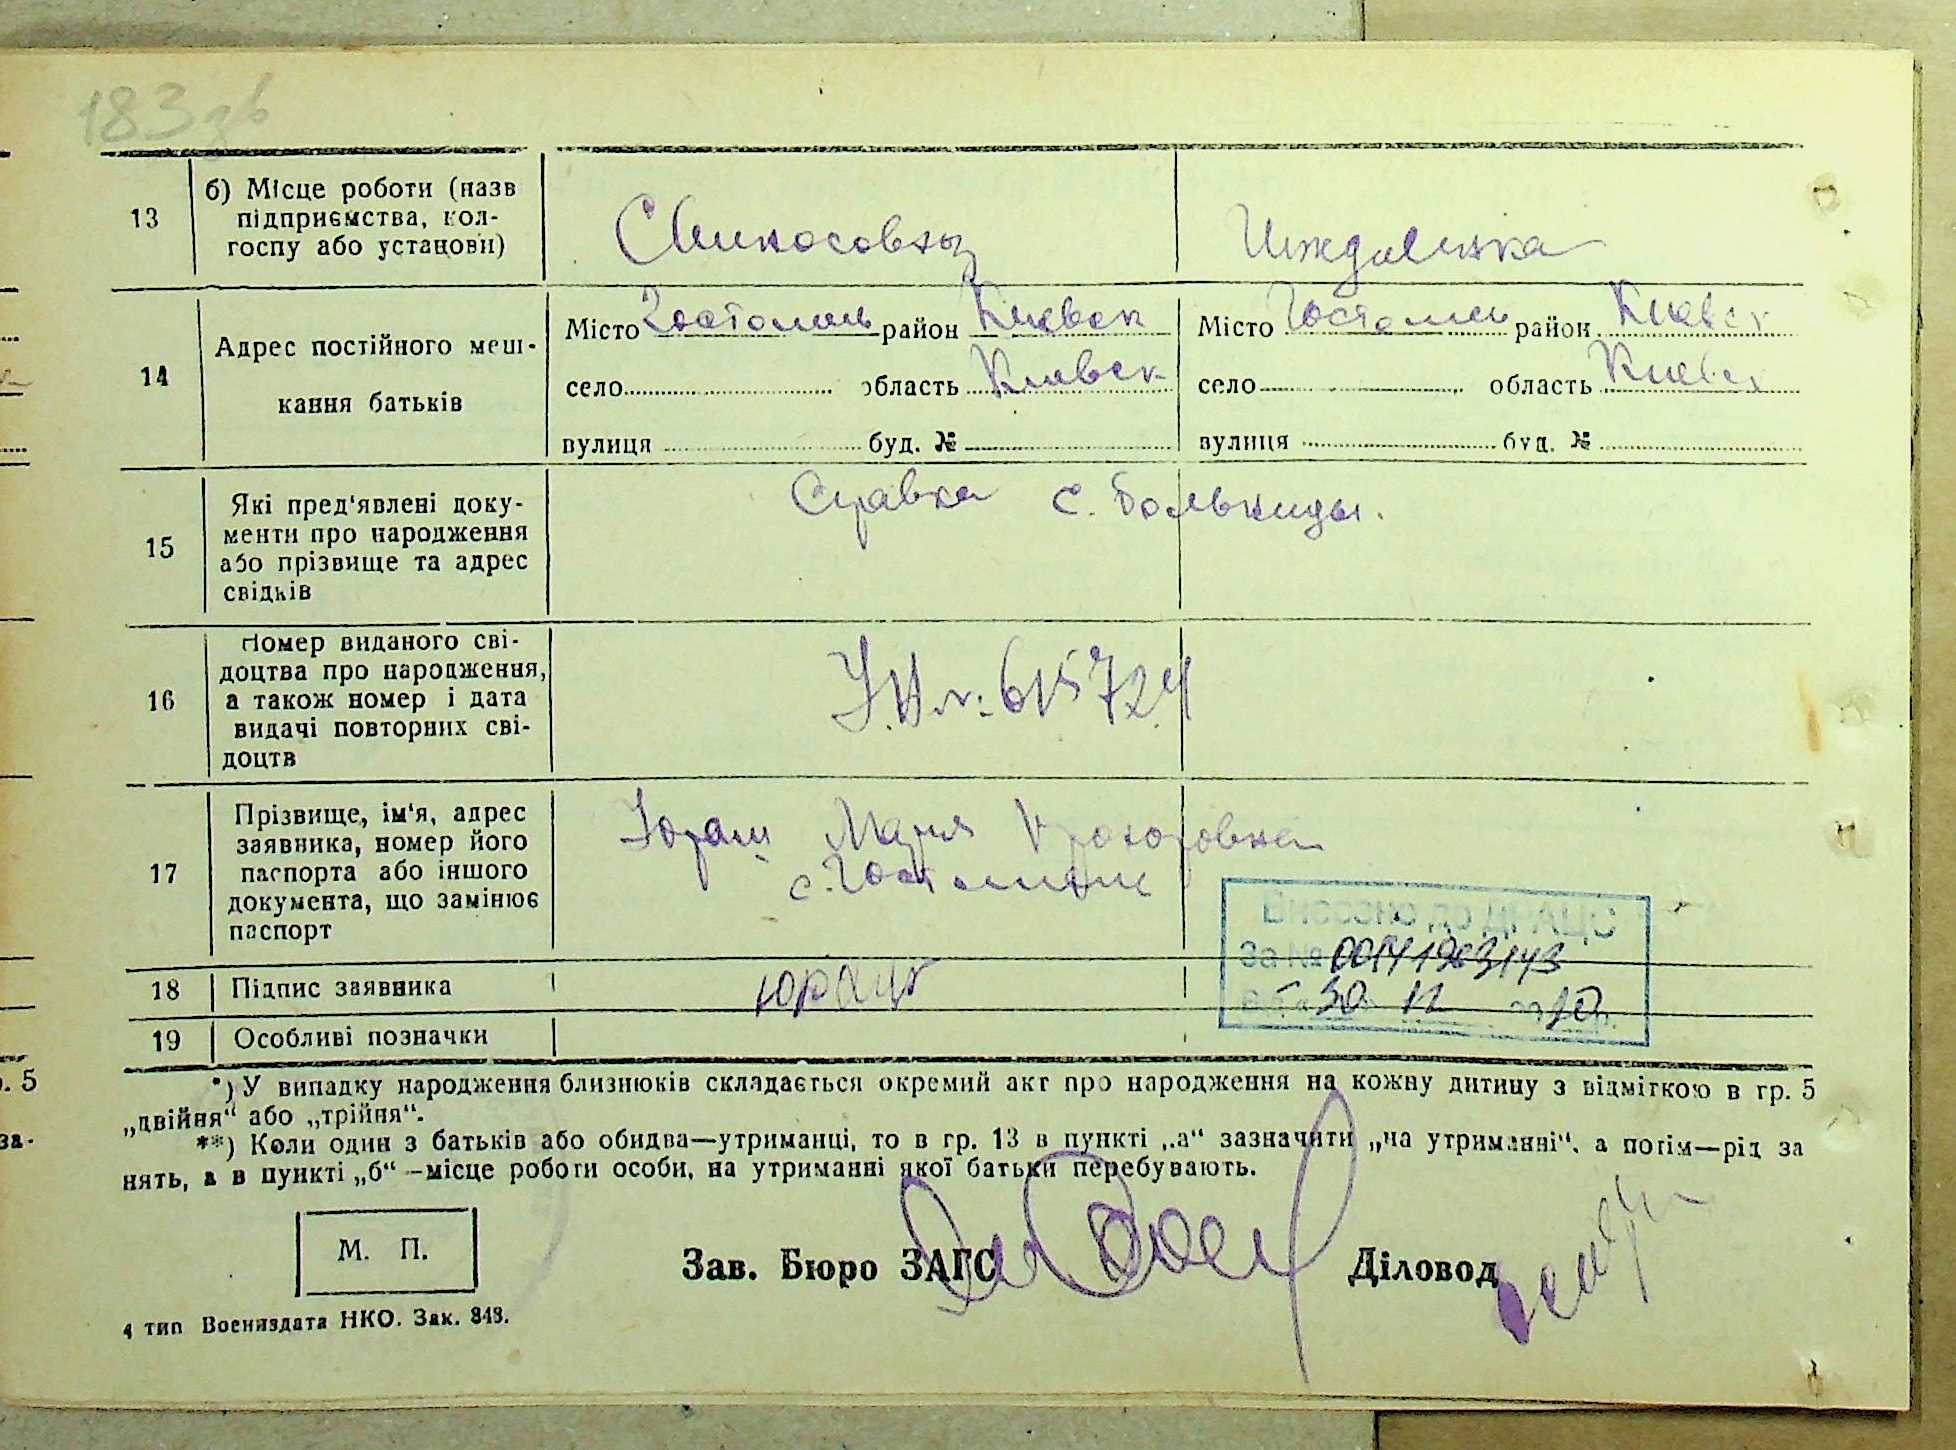 183 зв
13
б) Місце роботи (назв
підприємства, кол-
госпу або установи)
14
Адрес постійного меш-
кання батьків
Місто Гостомель район Киевск
село область Киевск
вулиця буд. №
Місто Гостомель район Киевск
село область Киевск
вулиця буд. №
15
Які пред'явлені доку-
менти про народження
або прізвище та адрес
свідків
Справка с. больницы.
16
Номер виданого сві-
доцтва про народження,
а також номер і дата
видачі повторних сві-
доцтв
№: 615724
17
Прізвище, ім'я, адрес
заявника, номер його
паспорта або іншого
документа, що замінює
паспорт
Юраш Мария Прохоровна
с. Гостомель
Внесено до ДРАЦС
За № 00141963143
Від « 30 » 12 2010р.
18
Підпис заявника
19
Особливі позначки
*) У випадку народження близнюків складається окремий акт про народження на кожну дитину з відміткою в гр. 5
„двійня“ або „трійня“.
**) Коли один з батьків або обидва—утриманці, то в гр. 13 в пункті „а“ зазначити „на утриманні“, а потім—рід за
нять, а в пункті „б“ –місце роботи особи, на утриманні якої батьки перебувають.
М. П.
Зав. Бюро ЗАГС
Діловод
4 тип Воениздата НКО. Зак. 848.
р. 5
за-